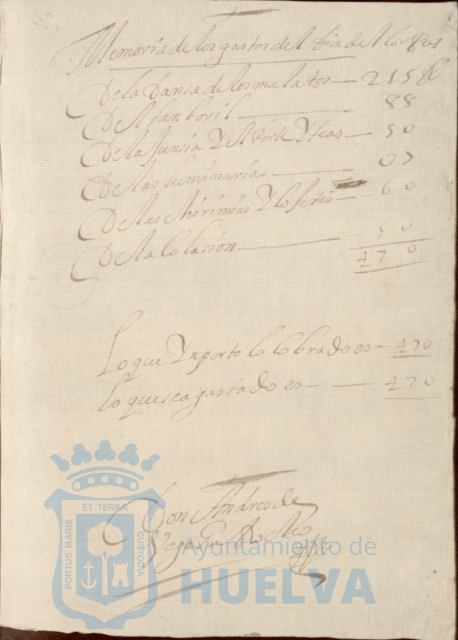 Memoria de los gastos del dia del Corpus
De la Dansa de los mulatos — 215
Del tanboril — 88
De la Junsia Y el Porte Y teas — 50
De las luminarias — 07
De las chirimias Y — 60
De la colasion — 50
470
Lo que Ynporto lo cobrado es — 470
lo que sea gastado es — 470
Don Andres de
PORTUS MARIS ET TERRÆ CUSTODIA
Ayuntamiento de
HUELVA